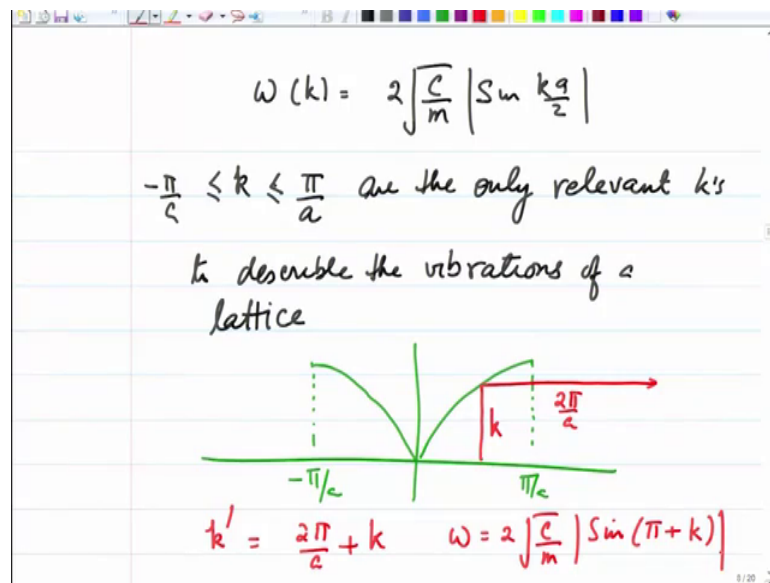 ω(k) = 2√(c/m) |Sin ka/2|
-π/a ≤ k ≤ π/a are the only relevant k's
to describle the vibrations of a
lattice
k 2π/a
-π/a π/a
k' = 2π/a + k ω = 2√(c/m) |Sin (π+k)|
8/20